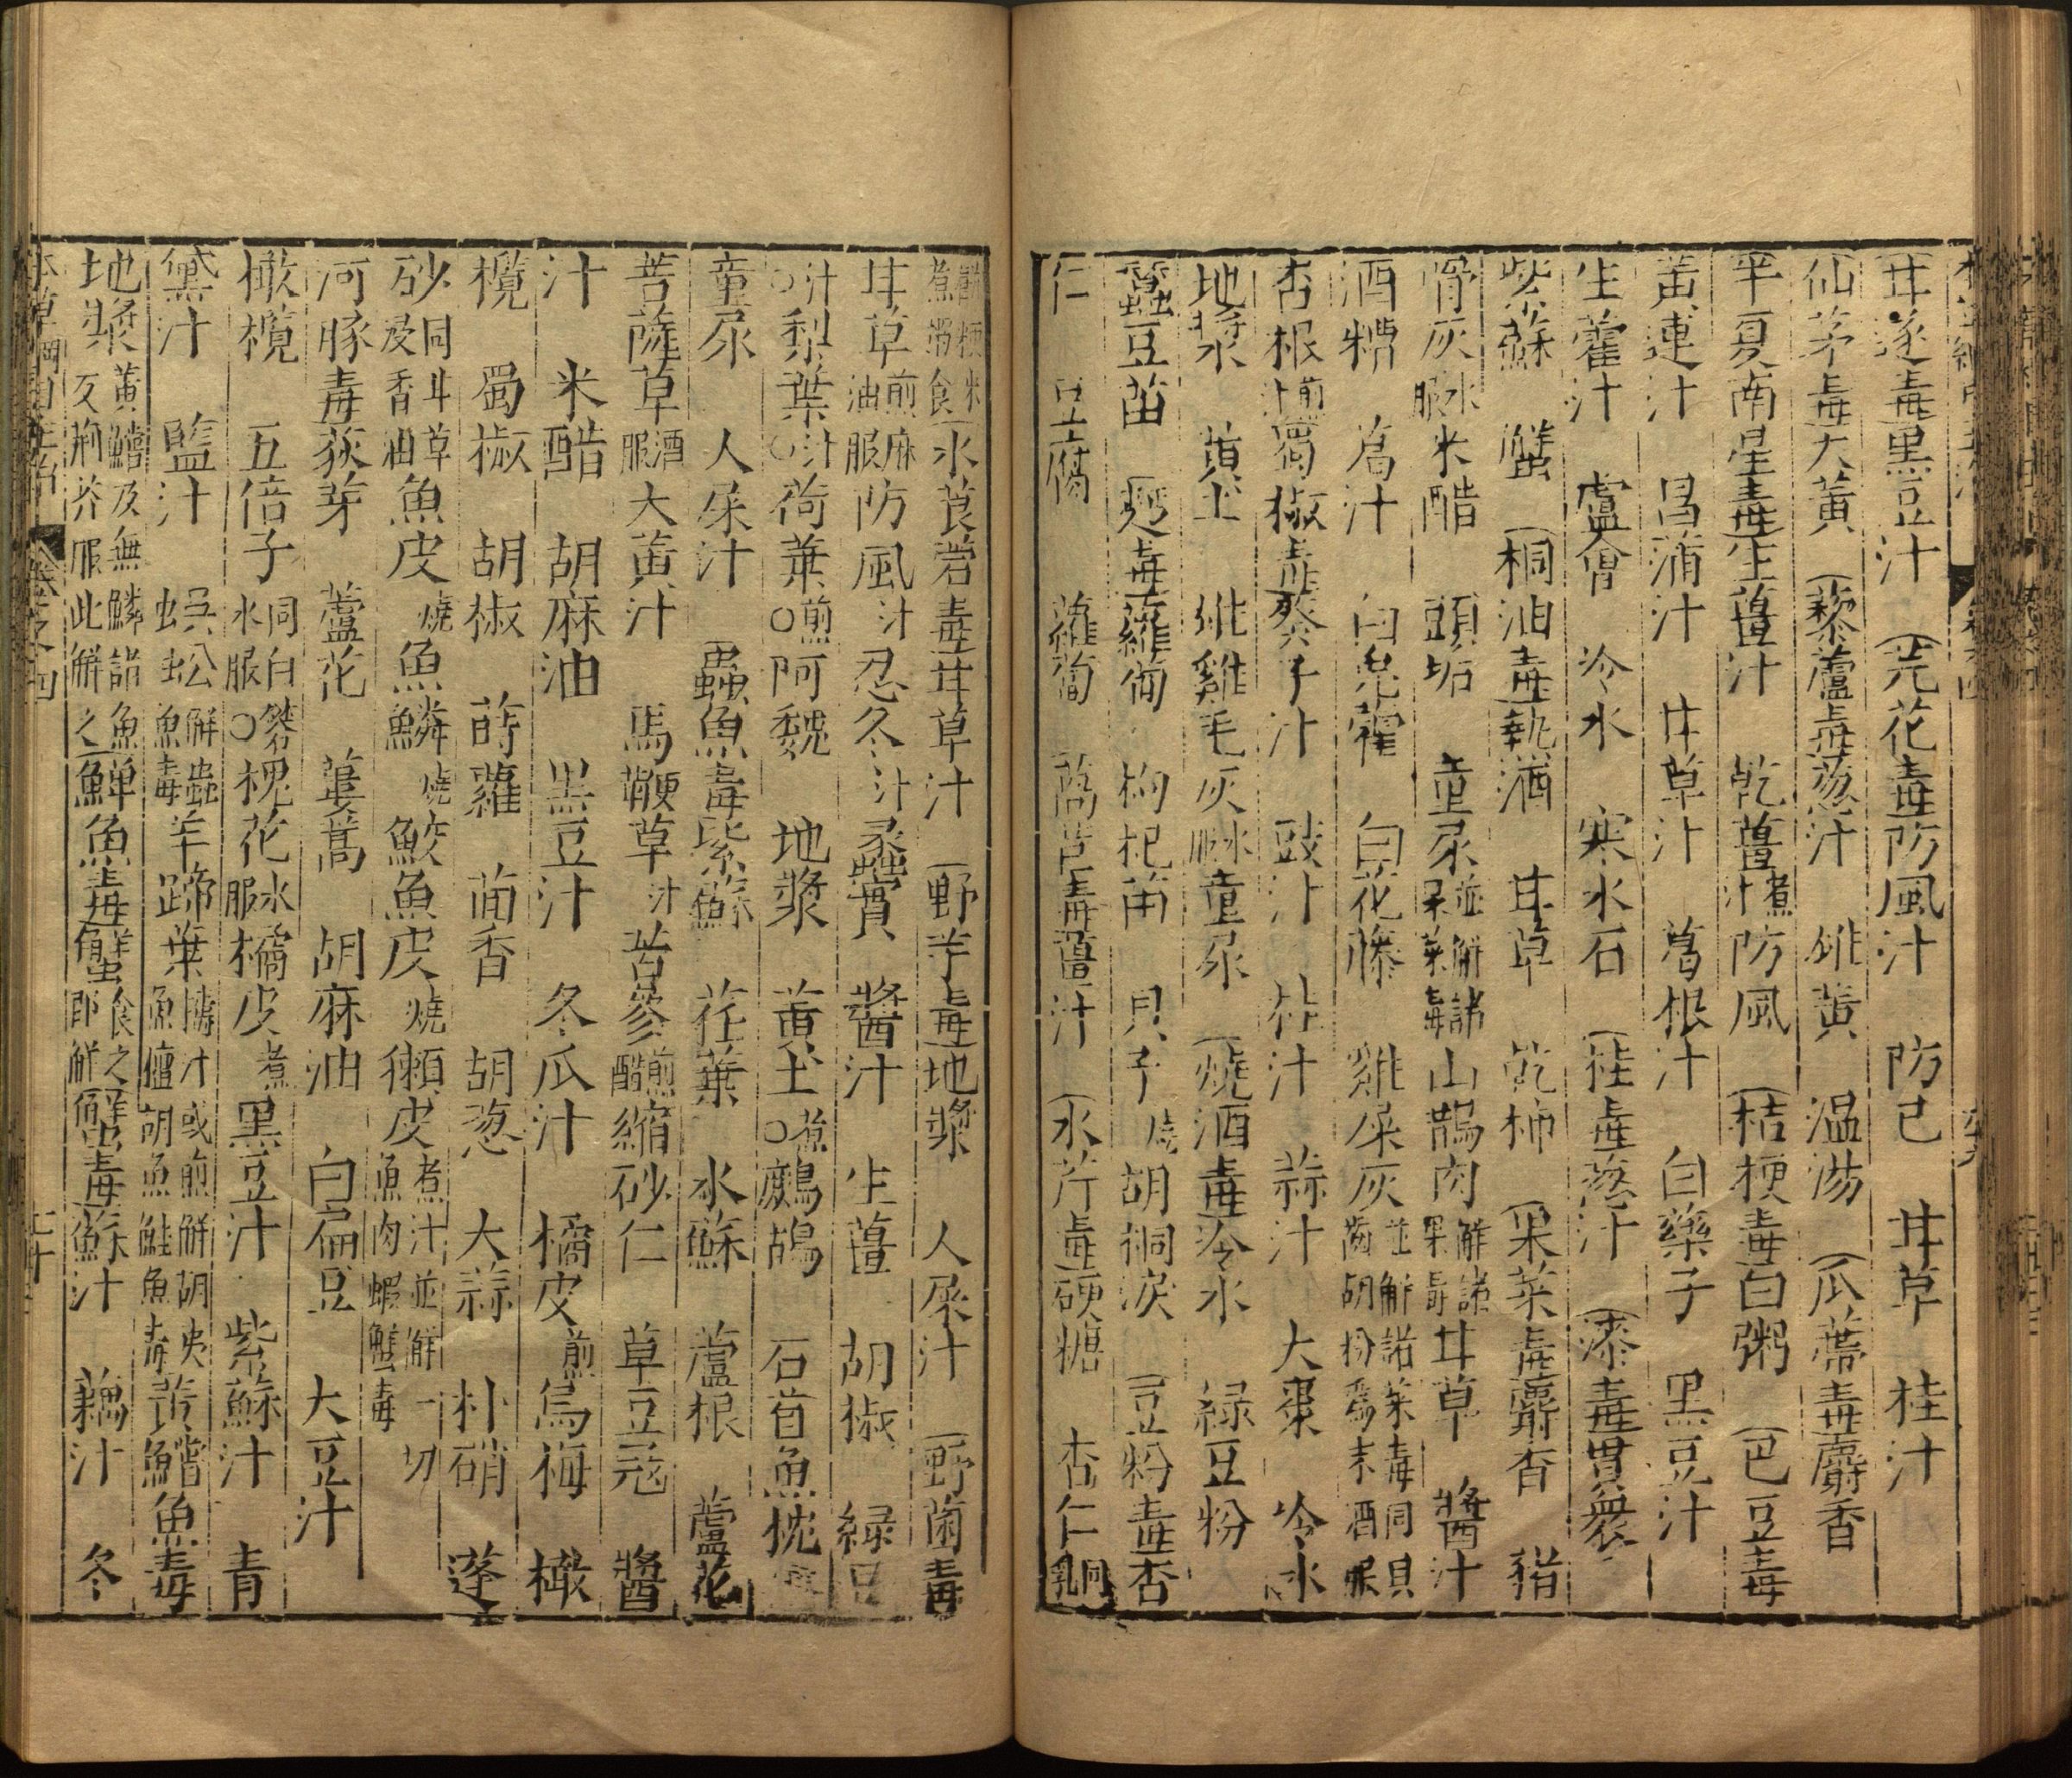 甘遂毒黑豆汁 芫花毒防風汁 防己 甘草 桂汁
仙茅毒大黃 藜蘆毒葱汁 雄黃 温湯 瓜蒂毒麝香
半夏南星毒生薑汁 乾薑煮汁防風 桔梗毒白粥 巴豆毒
黃連汁 昌蒲汁 甘草汁 葛根汁 白藥子 黑豆汁
生藿汁 蘆會 冷水 寒水石 桂毒葱汁 漆毒貫衆
紫蘇 蟹 桐油毒熱酒 甘草 乾柿 果菜毒麝香 猪
骨灰水服米醋 頭垢 童尿並解諸果菜毒山鵲肉解諸果毒甘草 醬汁
酒糟 葛汁 白兔藿 白花藤 雞屎灰並解諸菜毒同貝齒胡粉為末酒服
杏根煎汁蜀椒毒葵子汁 豉汁 桂汁 蒜汁 大棗 冷水
地漿 黃土 雄雞毛灰水服童尿 燒酒毒冷水 緑豆粉
蠶豆苗 麪毒蘿蔔 枸杞苗 貝子燒胡桐淚 豆粉毒杏
仁 豆腐 蘿蔔 萵苣毒薑汁 水芹毒硬糖 杏仁同乳
餅粳米煮粥食水莨菪毒甘草汁 野芋毒地漿 人屎汁 野菌毒
甘草煎麻油服防風汁忍冬汁蠡實 醬汁 生薑 胡椒 緑豆
汁○梨葉汁○荷葉煎○阿魏 地漿 黃土煮○鷓鴣 石首魚枕
童尿 人屎汁 蟲魚毒紫蘇 荏葉 水蘇 蘆根 蘆花
菩薩草酒服大黃汁 馬鞭草汁苦參煎醋縮砂仁 草豆蔻 醬
汁 米醋 胡麻油 黑豆汁 冬瓜汁 橘皮煎烏梅 橄
欖 蜀椒 胡椒 蒔蘿 茴香 胡葱 大蒜 朴硝 蓬
砂同甘草及香油魚皮燒魚鱗燒鮫魚皮燒獺皮煮汁並解一切魚肉蝦蟹毒
河豚毒荻芽 蘆花 蔞蒿 胡麻油 白扁豆 大豆汁
橄欖 五倍子同白礬水服○槐花水服橘皮煮黑豆汁 紫蘇汁 青
黛汁 監汁 蜈蚣解蟲魚毒羊蹄葉擣汁或煎解胡夷魚檀胡魚鮭魚毒黃鱨魚毒
地漿黃鱨及無鱗諸魚反荊芥服此解之鱓魚毒蟹食之即解蟹毒蘇汁 藕汁 冬